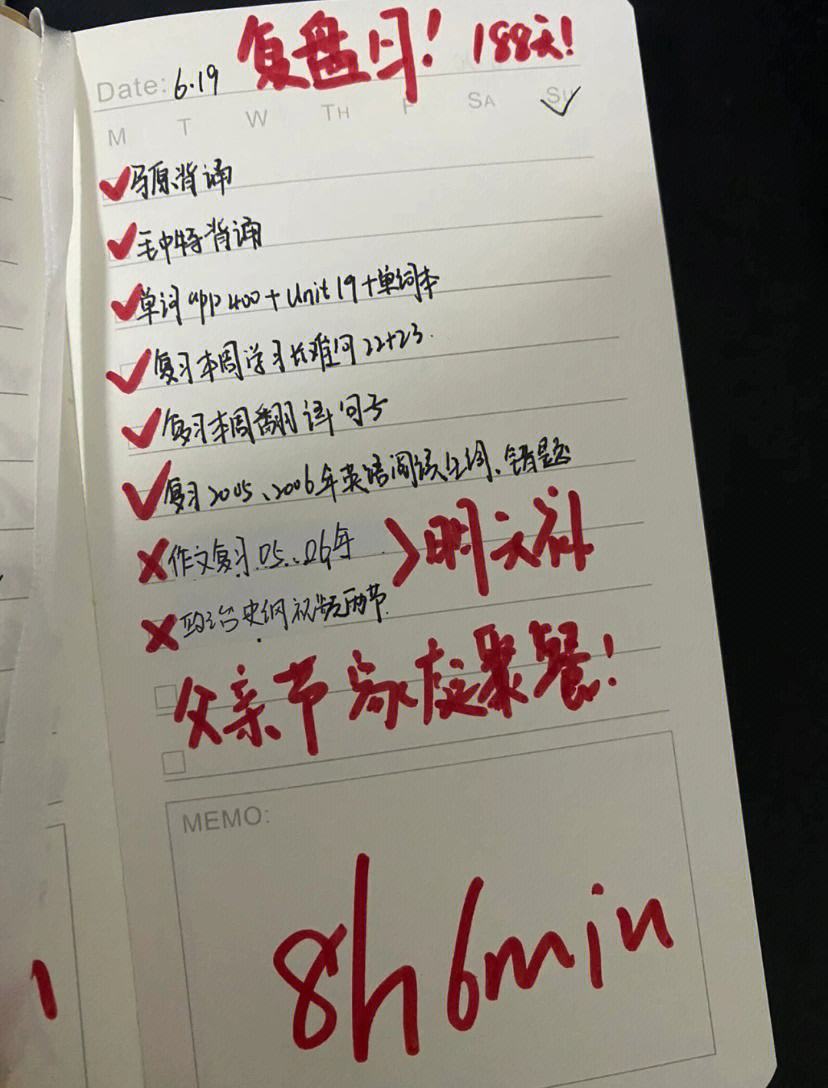 复盘日! 188天!
Date: 6.19
M T W TH F SA SU
马原背诵
毛中特背诵
单词app400+Unit19+单词本
复习本周学习长难句22+23.
复习本周翻译句子
复习2005、2006年英语阅读生词、错题
作文复习05、06年 >明天补
政治史纲视频两节
父亲节家庭聚餐!
MEMO:
8h6min